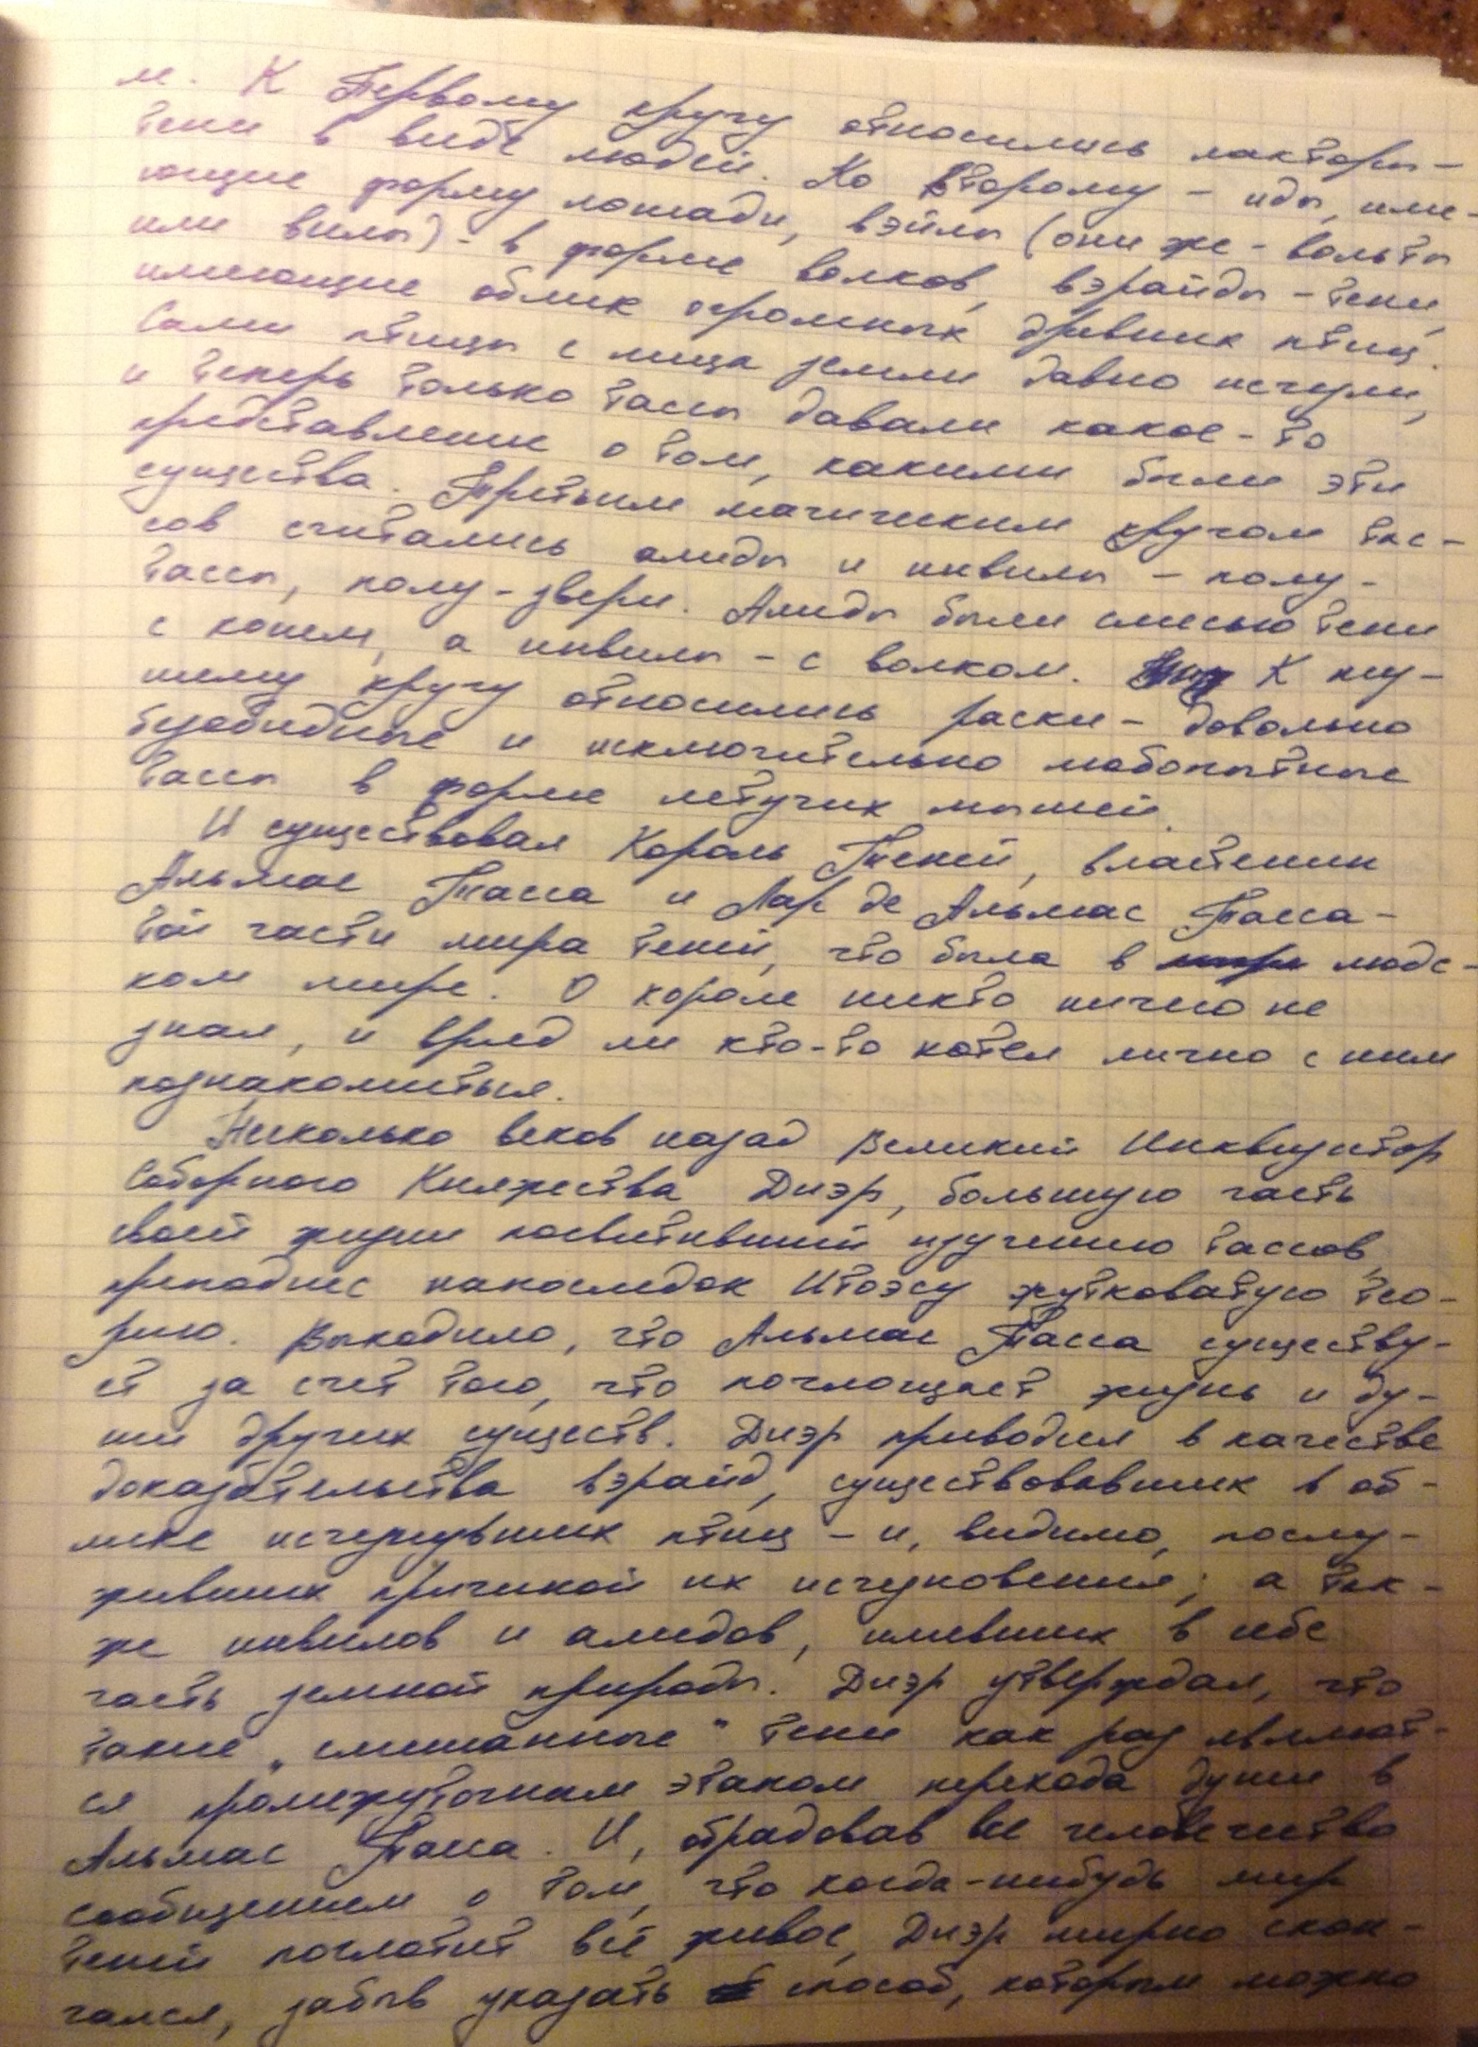 м. К Первому кругу относились макторы -
тени в виде людей. Ко Второму - иды, име-
ющие форму лошади, вэйлы (они же - вольты
или вилы) - в форме волков, вэрайды - тени,
имеющие облик огромных древних птиц.
Сами птицы с лица земли давно исчезли,
и теперь только тассы давали какое-то
представление о том, какими были эти
существа. Третьим магическим кругом тас-
сов считались амиды и инвилы - полу-
тассы, полу-звери. Амиды были смесью тени
с конем, а инвилы - с волком. К низ-
шему кругу относились раски - довольно
безобидные и исключительно любопытные
тассы в форме летучих мышей.
И существовал Король Теней, властелин
Альмас Тасса и Лар де Альмас Тасса -
той части мира теней, что была в людс-
ком мире. О короле никто ничего не
знал, и вряд ли кто-то хотел лично с ним
познакомиться.
Несколько веков назад Великий Инквизитор
Соборного Княжества Диэр, большую часть
своей жизни посвятивший изучению тассов,
преподнес напоследок Итоэсу жутковатую тео-
рию. Выходило, что Альмас Тасса существу-
ет за счет того, что поглощает жизнь и ду-
ши других существ. Диэр приводил в качестве
доказательства вэрайд, существовавших в об-
лике исчезнувших птиц - и, видимо, послу-
живших причиной их исчезновения; а так-
же инвилов и амидов, имевших в себе
часть земной природы. Диэр утверждал, что
такие „смешанные" тени как раз являют-
ся промежуточным этапом перехода души в
Альмас Тасса. И, обрадовав все человечество
сообщением о том, что когда-нибудь мир
теней поглотит всё живое, Диэр мирно скон-
чался, забыв указать способ, которым можно